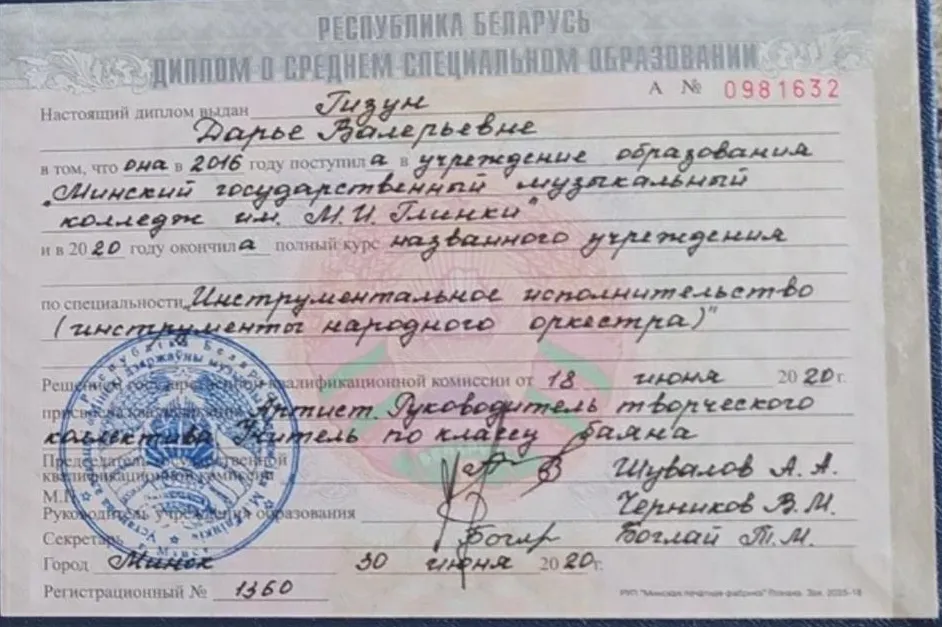 РЕСПУБЛИКА БЕЛАРУСЬ
ДИПЛОМ О СРЕДНЕМ СПЕЦИАЛЬНОМ ОБРАЗОВАНИИ
А № 0981632
Настоящий диплом выдан Гизун
Дарье Валерьевне
в том, что она в 2016 году поступила в учреждение образования
"Минский государственный музыкальный
колледж им. М.И. Глинки"
и в 2020 году окончила полный курс названного учреждения
по специальности "Инструментальное исполнительство
(инструменты народного оркестра)"
Решением государственной квалификационной комиссии от 18 июня 2020 г.
присвоена квалификация Артист. Руководитель творческого
коллектива. Учитель по классу баяна
Председатель государственной
квалификационной комиссии Шувалов А. А.
М.П.
Руководитель учреждения образования Черников В. М.
Секретарь Боглай Т. М.
Город Минск 30 июня 2020 г.
Регистрационный № 1360
РУП "Минская печатная фабрика" Гознака. Зак. 2025-18
Рэспубліка Беларусь
г. Мінск